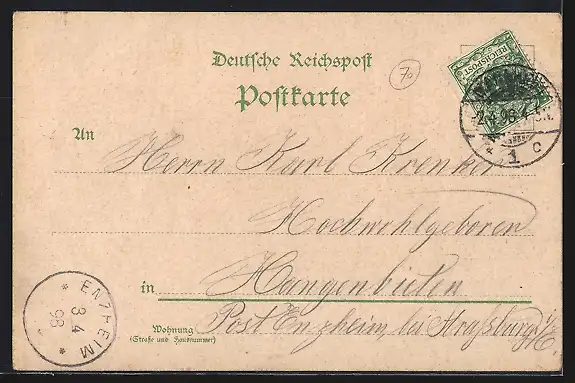 Deutsche Reichspost
Postkarte
70
REICHSPOST
-2.4.98.
1 c
An
Herrn Karl Krenker
Hochwohlgeboren
in Hangenbieten
Wohnung
(Straße und Hausnummer)
Post Enzheim, bei Straßburg i/E
* ENZHEIM *
3 4
98